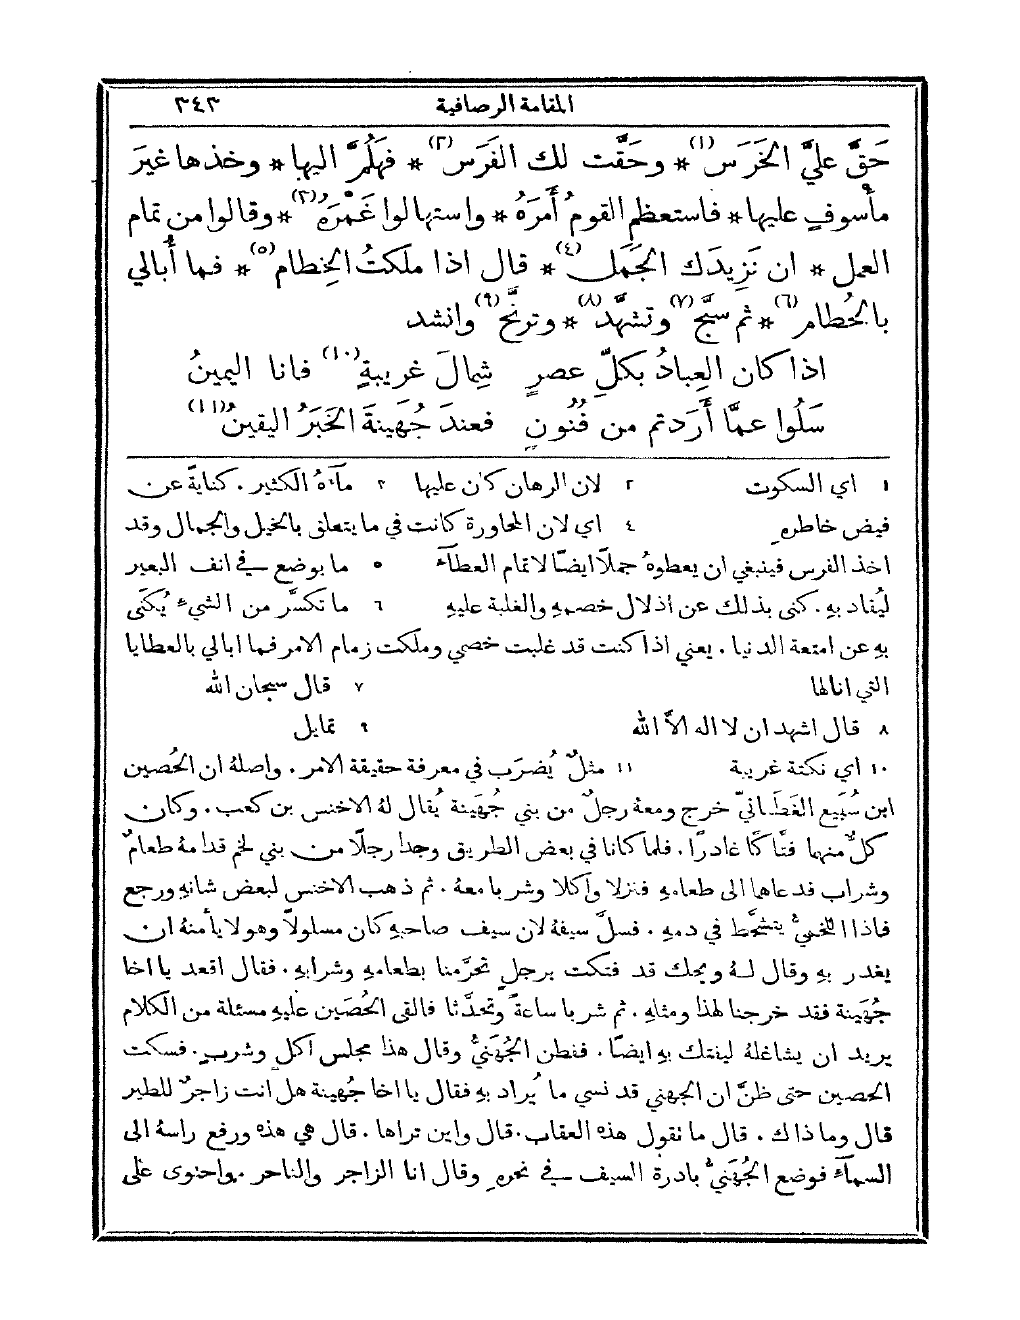 المقامة الرصافية ٣٤٣
حَقَّ عليَّ الخَرَس(١) * وحَقَّت لك الفَرَس(٢) * فهَلُمَّ اليها * وخذها غيرَ
مأسوفٍ عليها * فاستعظم القومُ أَمرَهُ * واستهالوا غَمْرَهُ(٣) * وقالوا من تمام
العمل * ان نَزِيدَك الجَمَل(٤) * قال اذا ملكتُ الخِطام(٥) * فما أُبالي
بالحُطام(٦) * ثم سبَّح(٧) وتشهَّد(٨) * وترنَّح(٩) وانشد
اذا كان العِبادُ بكلِّ عصرٍ شِمالَ غريبةٍ(١٠) فانا اليمينُ
سَلُوا عمَّا أَرَدتم من فُنُونٍ فعندَ جُهَينةَ الخَبَرُ اليقينُ(١١)
١ اي السكوت ٢ لان الرهان كان عليها ٣ مآءهُ الكثير. كنايةً عن
فيض خاطرهِ ٤ اي لان المحاورة كانت في ما يتعلق بالخيل والجمال وقد
اخذ الفرس فينبغي ان يعطوهُ جملًا ايضًا لاتمام العطآء ٥ ما يوضع في انف البعير
ليُقاد بهِ. كنى بذلك عن اذلال خصمهِ والغلبة عليهِ ٦ ما تكسَّر من الشيءِ يُكنَى
بهِ عن امتعة الدنيا. يعني اذا كنت قد غلبت خصمي وملكت زمام الامر فما ابالي بالعطايا
التي انالها ٧ قال سبحان الله
٨ قال اشهد ان لا اله الَّا الله ٩ تمايل
١٠ اي نكتة غريبة ١١ مثلٌ يُضرَب في معرفة حقيقة الامر. واصلهُ ان الحُصين
ابن سُبَيع الغَطَفانيّ خرج ومعهُ رجلٌ من بني جُهَينة يُقال لهُ الاخنس بن كعب. وكان
كلٌّ منهما فتَّاكًا غادرًا. فلما كانا في بعض الطريق وجدا رجلًا من بني لخم قدامهُ طعامٌ
وشراب فدعاهما الى طعامهِ فنزلا وآكلا وشربا معهُ. ثم ذهب الاخنس لبعض شانهِ ورجع
فاذا اللخميُّ يتشحَّط في دمهِ. فسلَّ سيفهُ لان سيف صاحبهِ كان مسلولًا وهو لا يأمنهُ ان
يغدر بهِ وقال لهُ ويحك قد فتكت برجلٍ تحرَّمنا بطعامهِ وشرابهِ. فقال اقعد يا اخا
جُهَينة فقد خرجنا لهذا ومثلهِ. ثم شربا ساعةً وتحدَّثا فالقى الحُصَين عليهِ مسئلة من الكلام
يريد ان يشاغلهُ ليفتك بهِ ايضًا. ففطن الجُهَنيُّ وقال هذا مجلس اكلٍ وشربٍ. فسكت
الحصين حتى ظنَّ ان الجهني قد نسي ما يُراد بهِ فقال يا اخا جُهينة هل انت زاجرٌ للطير
قال وما ذاك. قال ما تقول هذه العقاب. قال واين تراها. قال هي هذه ورفع راسهُ الى
السمآء فوضع الجُهَنيُّ بادرة السيف في نحرهِ وقال انا الزاجر والناحر. واحتوى على